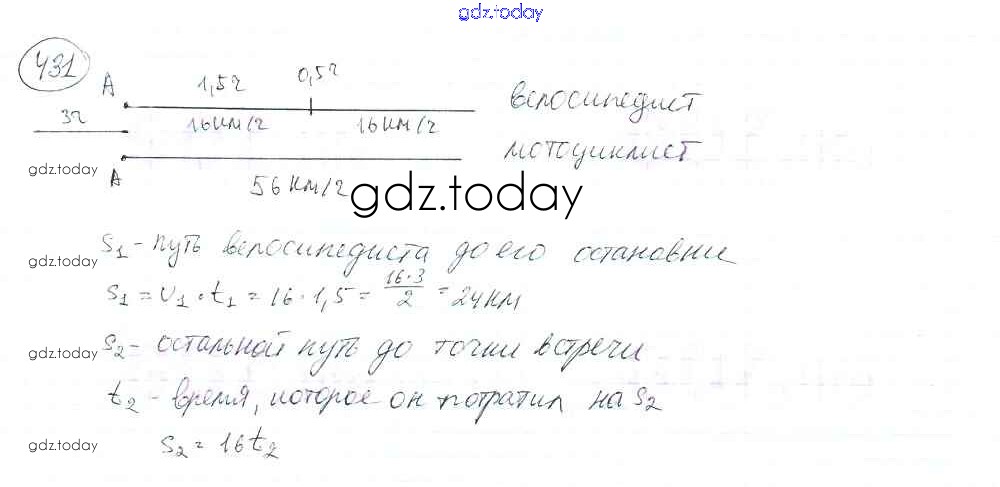 gdz.today
431
A 1,5ч 0,5ч
велосипедист
3ч 16км/ч 16км/ч
мотоциклист
gdz.today
A 56км/ч
gdz.today
S₁ - путь велосипедиста до его остановки
gdz.today
S₁ = υ₁ · t₁ = 16 · 1,5 = 16·3/2 = 24км
S₂ - остальной путь до точки встречи
gdz.today
t₂ - время, которое он потратил на S₂
gdz.today
S₂ = 16t₂